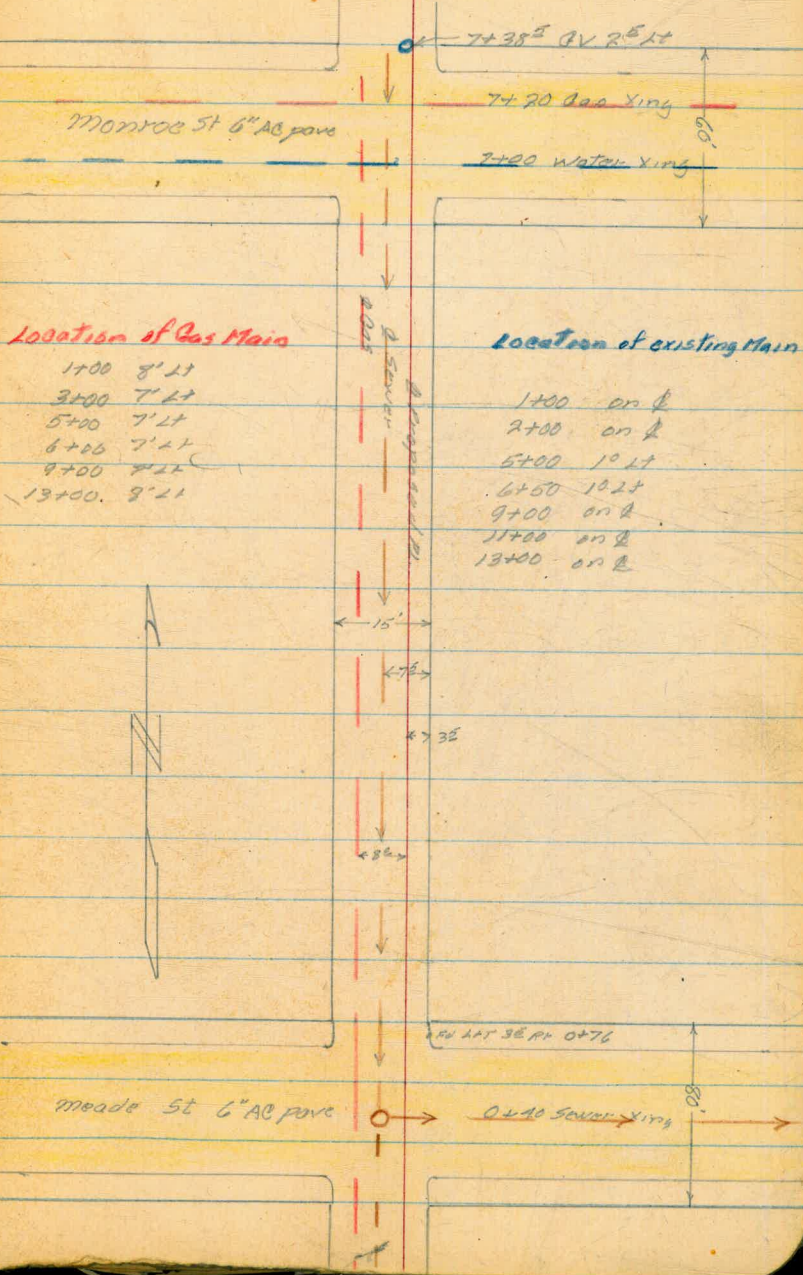 7+38⁵ GV 2⁵ Lt
7+20 Gas Xing
Monroe St 6" AC pave
60'
7+00 Water Xing
Location of Gas Main
1+00 8' Lt
3+00 7' Lt
5+00 7' Lt
6+00 7' Lt
9+00 7' Lt
13+00. 8' Lt
℄ Gas
℄ Sewer
℄ Proposed
Location of existing Main
1+00 on ℄
2+00 on ℄
5+00 1⁰ Lt
6+50 1⁰ Lt
9+00 on ℄
11+00 on ℄
13+00 on ℄
15'
7⁵
N
3⁵
8⁵
3⁵ Rt 0+76
Meade St 6" AC pave
0+40 Sewer Xing
80'